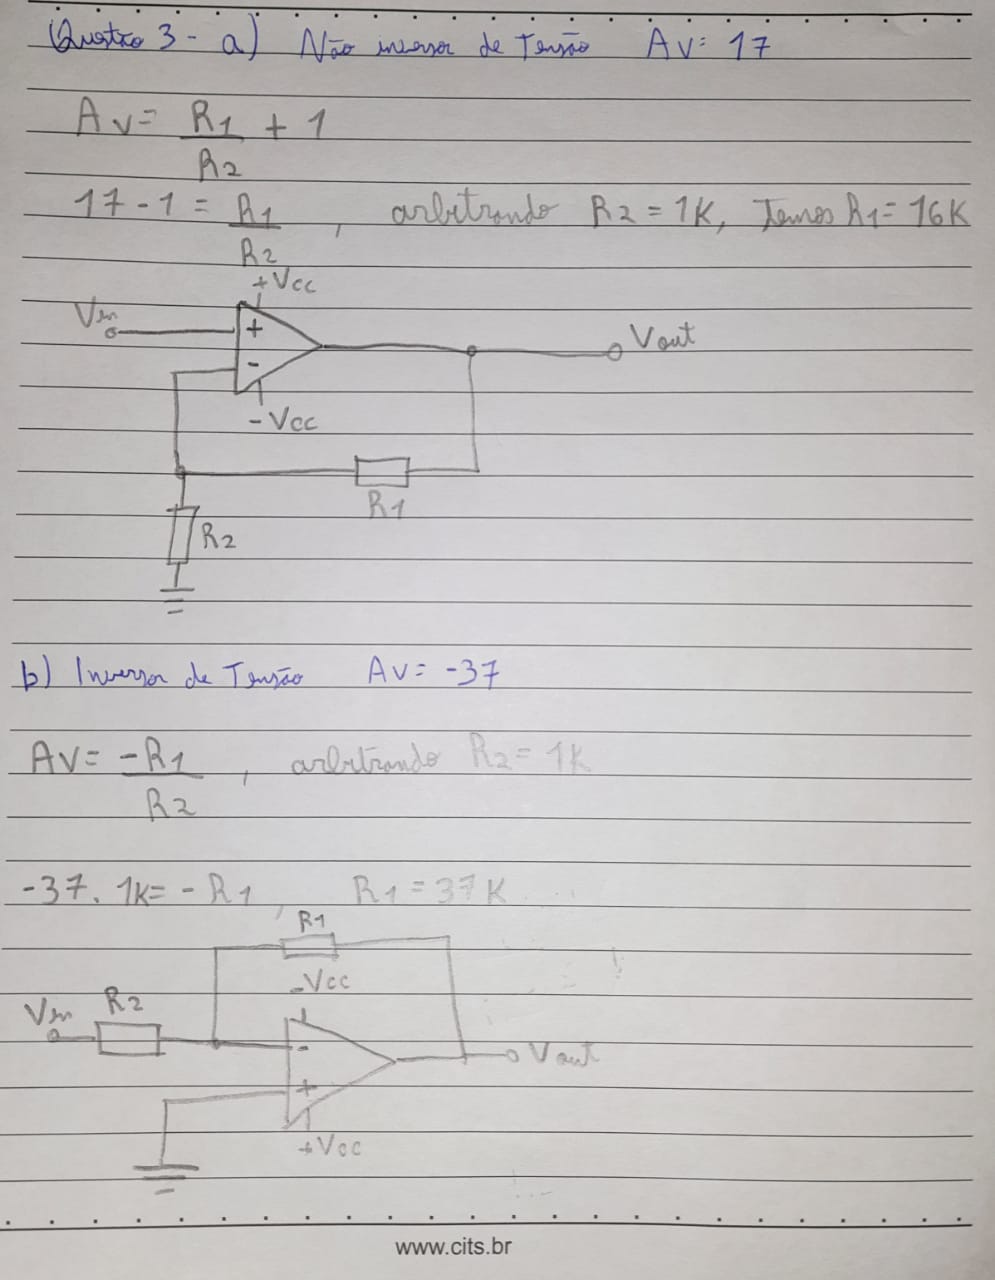 Questão 3 - a) Não inversor de Tensão AV= 17
AV= R1 + 1
R2
17-1 = R1 , arbitrando R2 = 1K, Temos R1= 16K
R2
+Vcc
Vin
+
Vout
-
-Vcc
R1
R2
b) Inversor de Tensão AV= -37
AV= -R1 , arbitrando R2= 1K
R2
-37. 1K= - R1, R1 = 37K
R1
-Vcc
Vin R2
-
Vout
+
+Vcc
www.cits.br